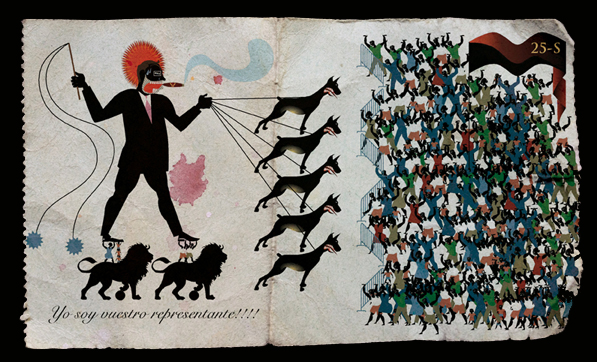 25-S
Yo soy vuestro representante!!!!